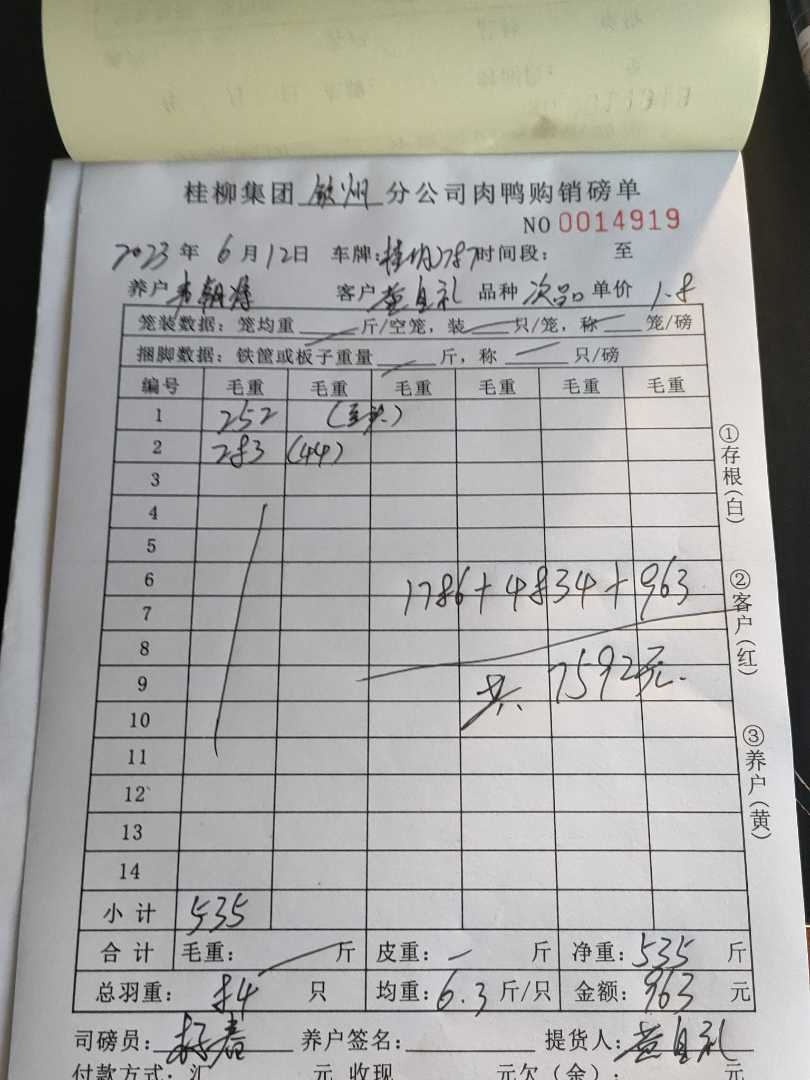 桂柳集团 钦州 分公司肉鸭购销磅单
NO 0014919
2023 年 6 月 12 日 车牌: 2787 时间段: 至
养户 客户 黄自礼 品种 次品 单价 1.8
笼装数据: 笼均重 斤/空笼, 装 只/笼, 称 笼/磅
捆脚数据: 铁筐或板子重量 斤, 称 只/磅
编号 毛重 毛重 毛重 毛重 毛重 毛重
1 252
2 283 (44)
3
4
5
6 1786+4834+963
7
8
9 共 7592元.
10
11
12
13
14
小计 535
合计 毛重: 斤 皮重: 斤 净重: 535 斤
总羽重: 84 只 均重: 6.3 斤/只 金额: 963 元
司磅员: 养户签名: 提货人: 黄自礼
付款方式: 汇 元 收现 元欠(余): 元
①存根(白)
②客户(红)
③养户(黄)